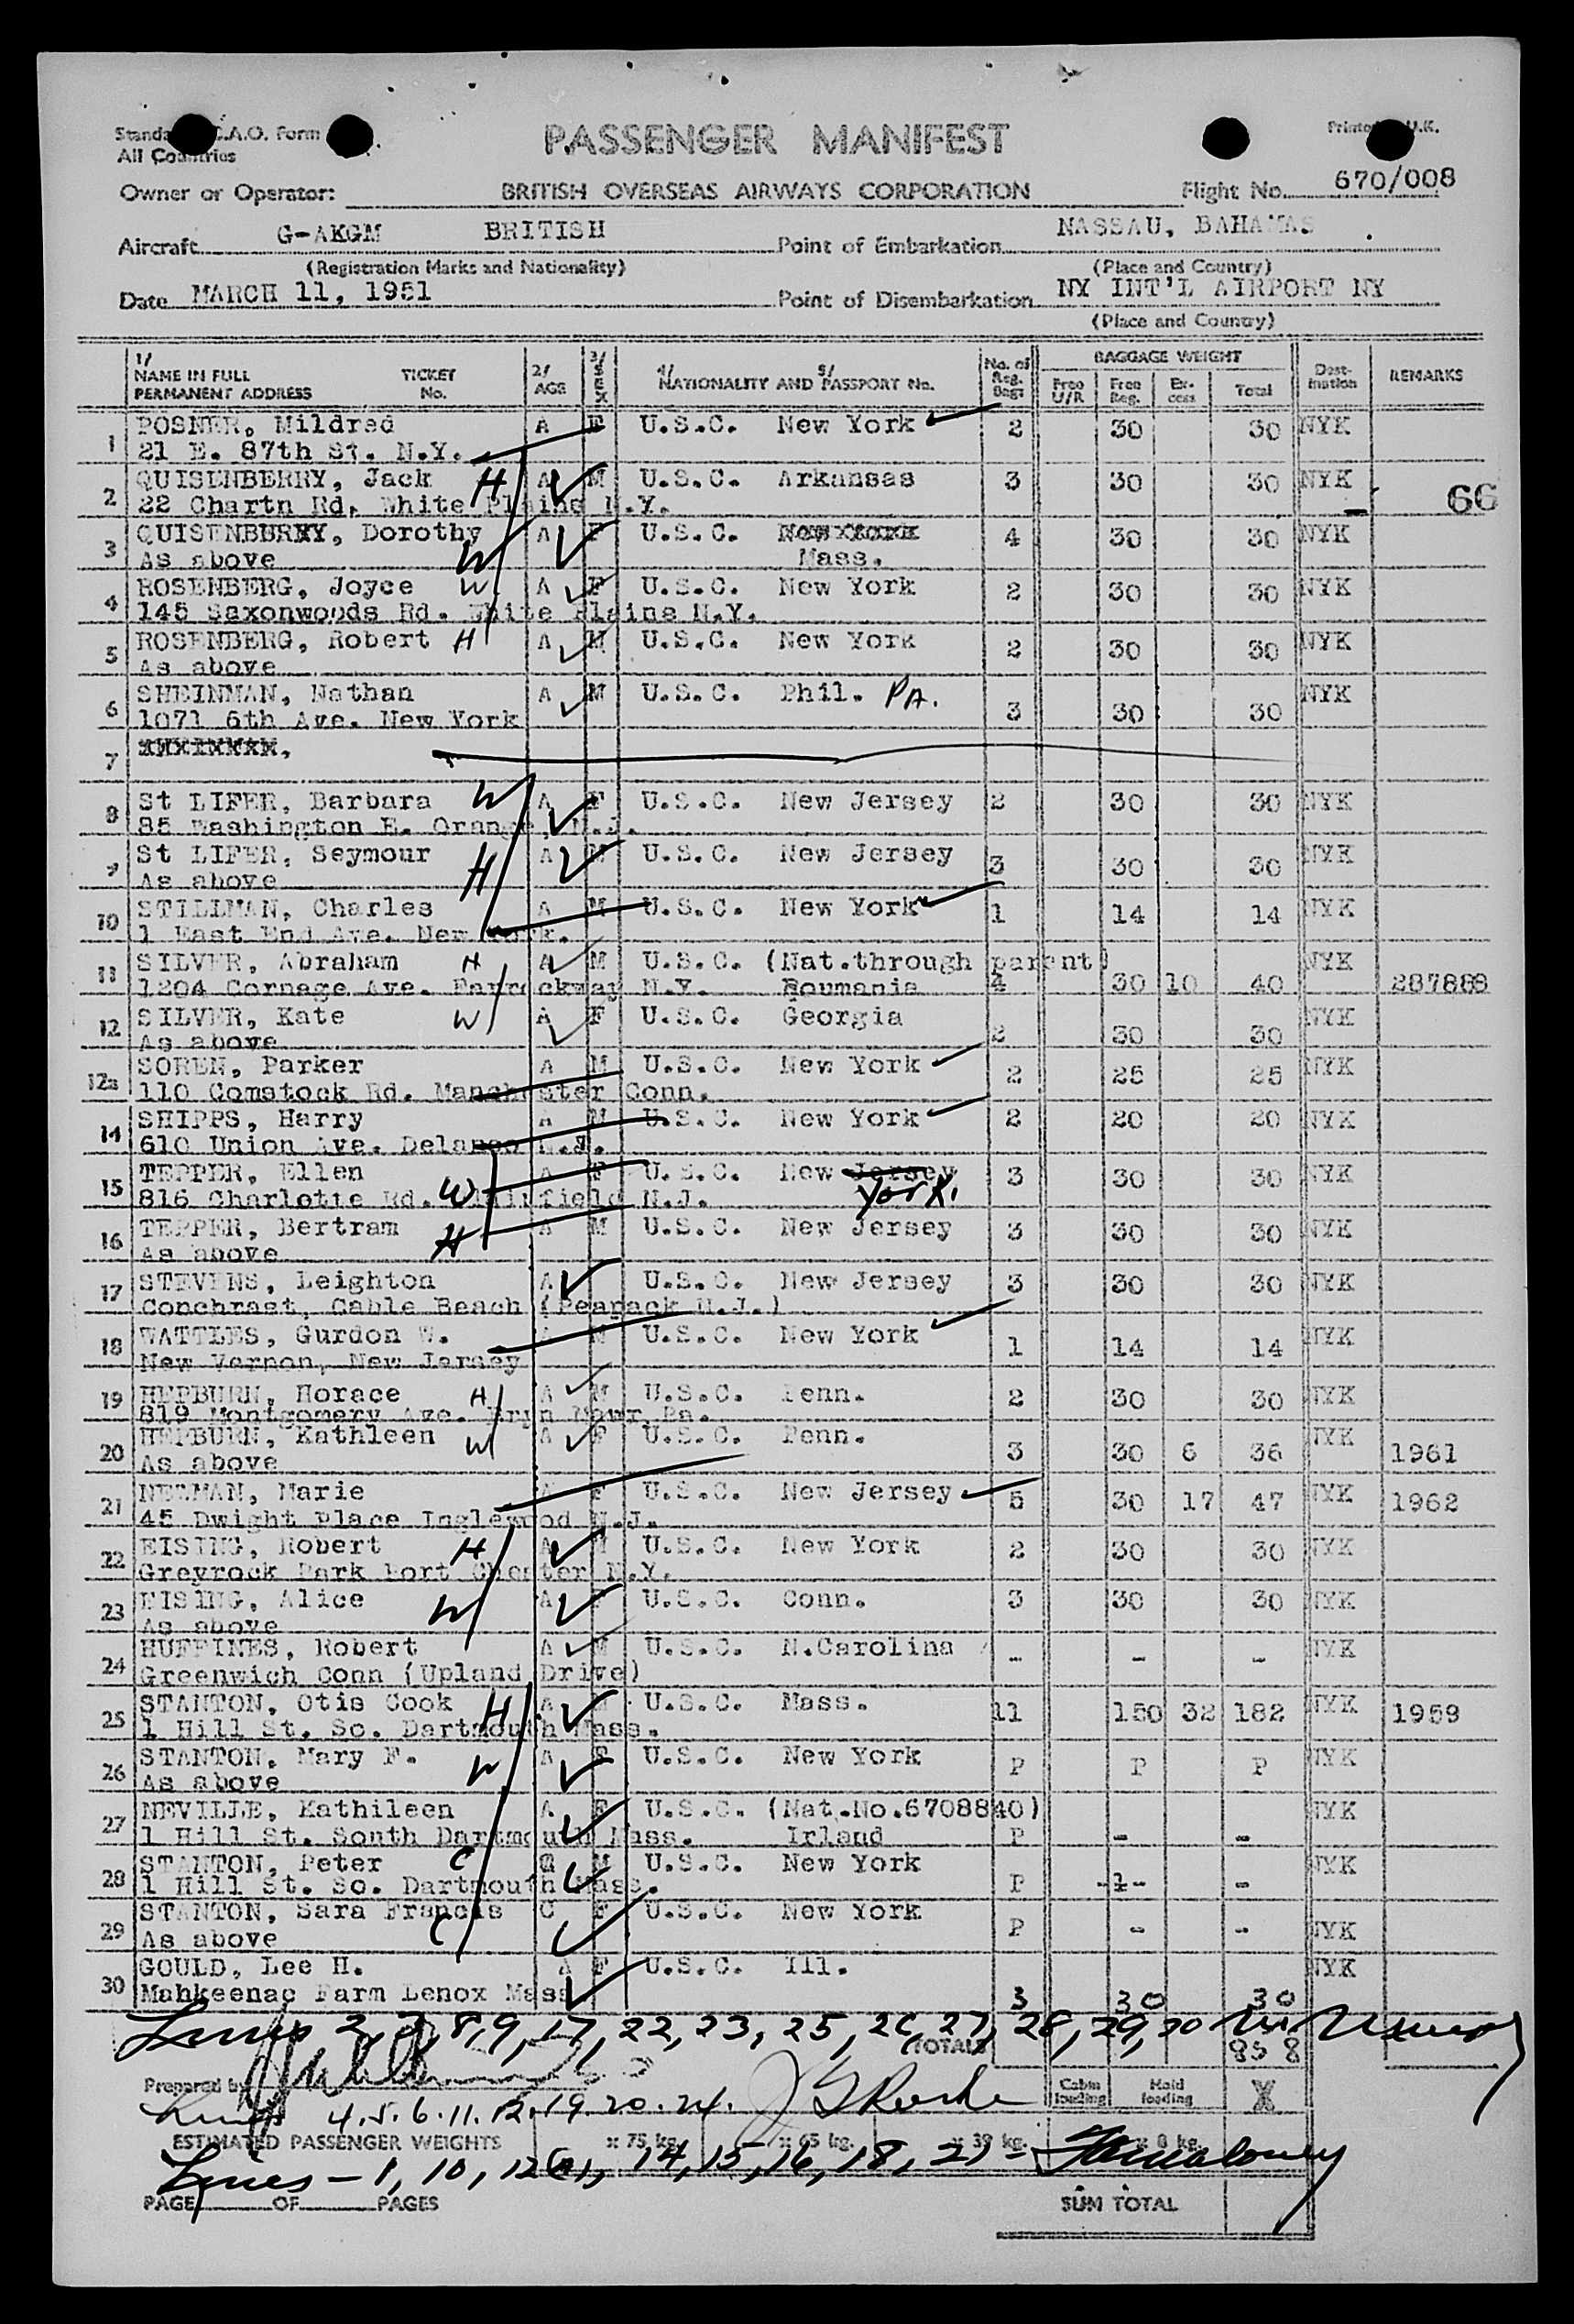 Standa C.A.O. Form
All Countries
PASSENGER MANIFEST
Printed U.K.
Owner or Operator: BRITISH OVERSEAS AIRWAYS CORPORATION Flight No. 670/008
Aircraft G-AKGM BRITISH Point of Embarkation NASSAU, BAHAMAS
(Registration Marks and Nationality) (Place and Country)
Date MARCH 11, 1951 Point of Disembarkation NY INT'L AIRPORT NY
(Place and Country)
1/ NAME IN FULL PERMANENT ADDRESS TICKET No. 2/ AGE 3/ SEX 4/ 5/ NATIONALITY AND PASSPORT No. No. of Reg. Bags BAGGAGE WEIGHT Free U/R Free Reg. Ex-cess Total Dest-ination REMARKS
1 POSNER, Mildred A F U.S.C. New York 2 30 30 NYK
21 E. 87th St. N.Y.
2 QUISENBERRY, Jack H A M U.S.C. Arkansas 3 30 30 NYK 66
22 Chartn Rd. White Plains N.Y.
3 QUISENBURXY, Dorothy A F U.S.C. 4 30 30 NYK
As above W Mass.
4 ROSENBERG, Joyce W A F U.S.C. New York 2 30 30 NYK
145 Saxonwoods Rd. White Plains N.Y.
5 ROSENBERG, Robert H A M U.S.C. New York 2 30 30 NYK
As above
6 SHEINMAN, Nathan A M U.S.C. Phil. PA. 3 30 30 NYK
1071 6th Ave. New York
7
8 St LIFER, Barbara W A F U.S.C. New Jersey 2 30 30 NYK
85 Washington E. Orange, N.J.
9 St LIFER, Seymour H A M U.S.C. New Jersey 3 30 30 NYK
As above
10 STILLMAN, Charles A M U.S.C. New York 1 14 14 NYK
1 East End Ave. New York.
11 SILVER, Abraham H A M U.S.C. (Nat.through parent) NYK
1204 Cornage Ave. Farrockway N.Y. Roumania 4 30 10 40 287888
12 SILVER, Kate W A F U.S.C. Georgia 2 30 30 NYK
As above
12a SOREN, Parker A M U.S.C. New York 2 25 25 NYK
110 Comstock Rd. Manchester Conn.
14 SHIPPS, Harry A M U.S.C. New York 2 20 20 NYK
610 Union Ave. Delanco N.J.
15 TEPPER, Ellen A F U.S.C. New Jersey 3 30 30 NYK
816 Charlotte Rd. W Plainfield N.J. York.
16 TEPPER, Bertram H A M U.S.C. New Jersey 3 30 30 NYK
As above
17 STEVENS, Leighton A U.S.C. New Jersey 3 30 30 NYK
Conchrast, Cable Beach (Peapack N.J.)
18 WATTLES, Gurdon W. A M U.S.C. New York 1 14 14 NYK
New Vernon, New Jersey
19 HEPBURN, Horace H A M U.S.C. Penn. 2 30 30 NYK
819 Montgomery Ave. Bryn Mawr Pa.
20 HEPBURN, Kathleen W A F U.S.C. Penn. 3 30 6 36 NYK 1961
As above
21 NELMAN, Marie A F U.S.C. New Jersey 5 30 17 47 NYK 1962
45 Dwight Place Inglewood N.J.
22 EISING, Robert H A M U.S.C. New York 2 30 30 NYK
Greyrock Park Port Chester N.Y.
23 EISING, Alice W A F U.S.C. Conn. 3 30 30 NYK
As above
24 HUFFINES, Robert A M U.S.C. N.Carolina - - - NYK
Greenwich Conn (Upland Drive)
25 STANTON, Otis Cook H A M U.S.C. Mass. 11 150 32 182 NYK 1959
1 Hill St. So. Dartmouth Mass.
26 STANTON, Mary F. W A F U.S.C. New York P P P NYK
As above
27 NEVILLE, Kathileen A F U.S.C. (Nat.No.6708840) NYK
1 Hill St. South Dartmouth Mass. Irland P - -
28 STANTON, Peter C C M U.S.C. New York P - - NYK
1 Hill St. So. Dartmouth Mass.
29 STANTON, Sara Francis C C F U.S.C. New York P - - NYK
As above
30 GOULD, Lee H. A F U.S.C. Ill. 3 30 30 NYK
Mahkeenac Farm Lenox Mass
Lines 2, 3, 8, 9, 17, 22, 23, 25, 26, 27, 28, 29, 30
TOTALS 858
Prepared by Cabin loading Hold loading X
Lines 4.5.6.11.12.19.20.24.
ESTIMATED PASSENGER WEIGHTS x 75 kg. x 65 kg. x 39 kg. x 8 kg.
Lines - 1, 10, 12(a), 14, 15, 16, 18, 21 -
PAGE OF PAGES SUM TOTAL